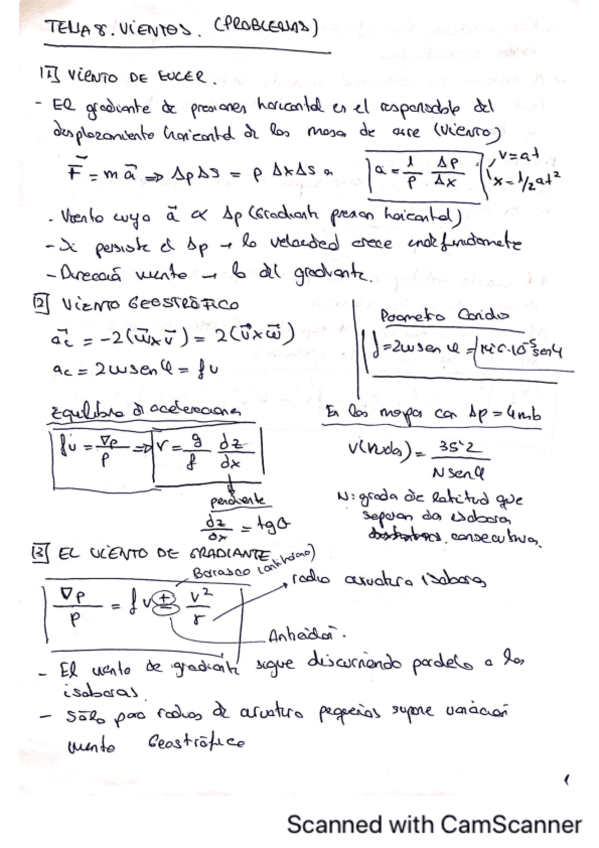 TEMA 8. VIENTOS. (PROBLEMAS)
1) VIENTO DE EULER.
- El gradiante de presiones horizontal es el responsable del
desplazamiento horizontal de las masa de aire (viento)
F = m a ⇒ Δp ΔS = ρ Δx Δs a
a = 1/ρ · Δp/Δx
v = at
x = 1/2 at²
- Viento cuya a ∝ Δp (Gradiante presion horizontal)
- Si persiste el Δp → la velocidad crece indefinidamente
- Dirección viento → la del gradiante.
2) VIENTO GEOSTRÓFICO
a⃗c = -2(w⃗ x v⃗) = 2(v⃗ x w⃗)
ac = 2wsenφ = fv
Parametro Coriolis
f = 2wsenφ = 14'6·10⁻⁵ senφ
Equilibrio de aceleraciones
fv = ∇p/ρ ⇒ v = g/f dz/dx
pendiente
dz/dx = tgθ
En los mapas con Δp = 4mb
v(nudos) = 35'2 / N senφ
N: grados de latitud que
separan dos isobaras
consecutivas.
3) EL VIENTO DE GRADIANTE
Borrasca
∇p/ρ = fv ± v²/r
radio curvatura isobaras
Anticiclón.
- El viento de gradiante sigue discurriendo paralelo a las
isobaras.
- Sólo para radios de curvatura pequeños supone variación
viento Geostrófico
1
Scanned with CamScanner